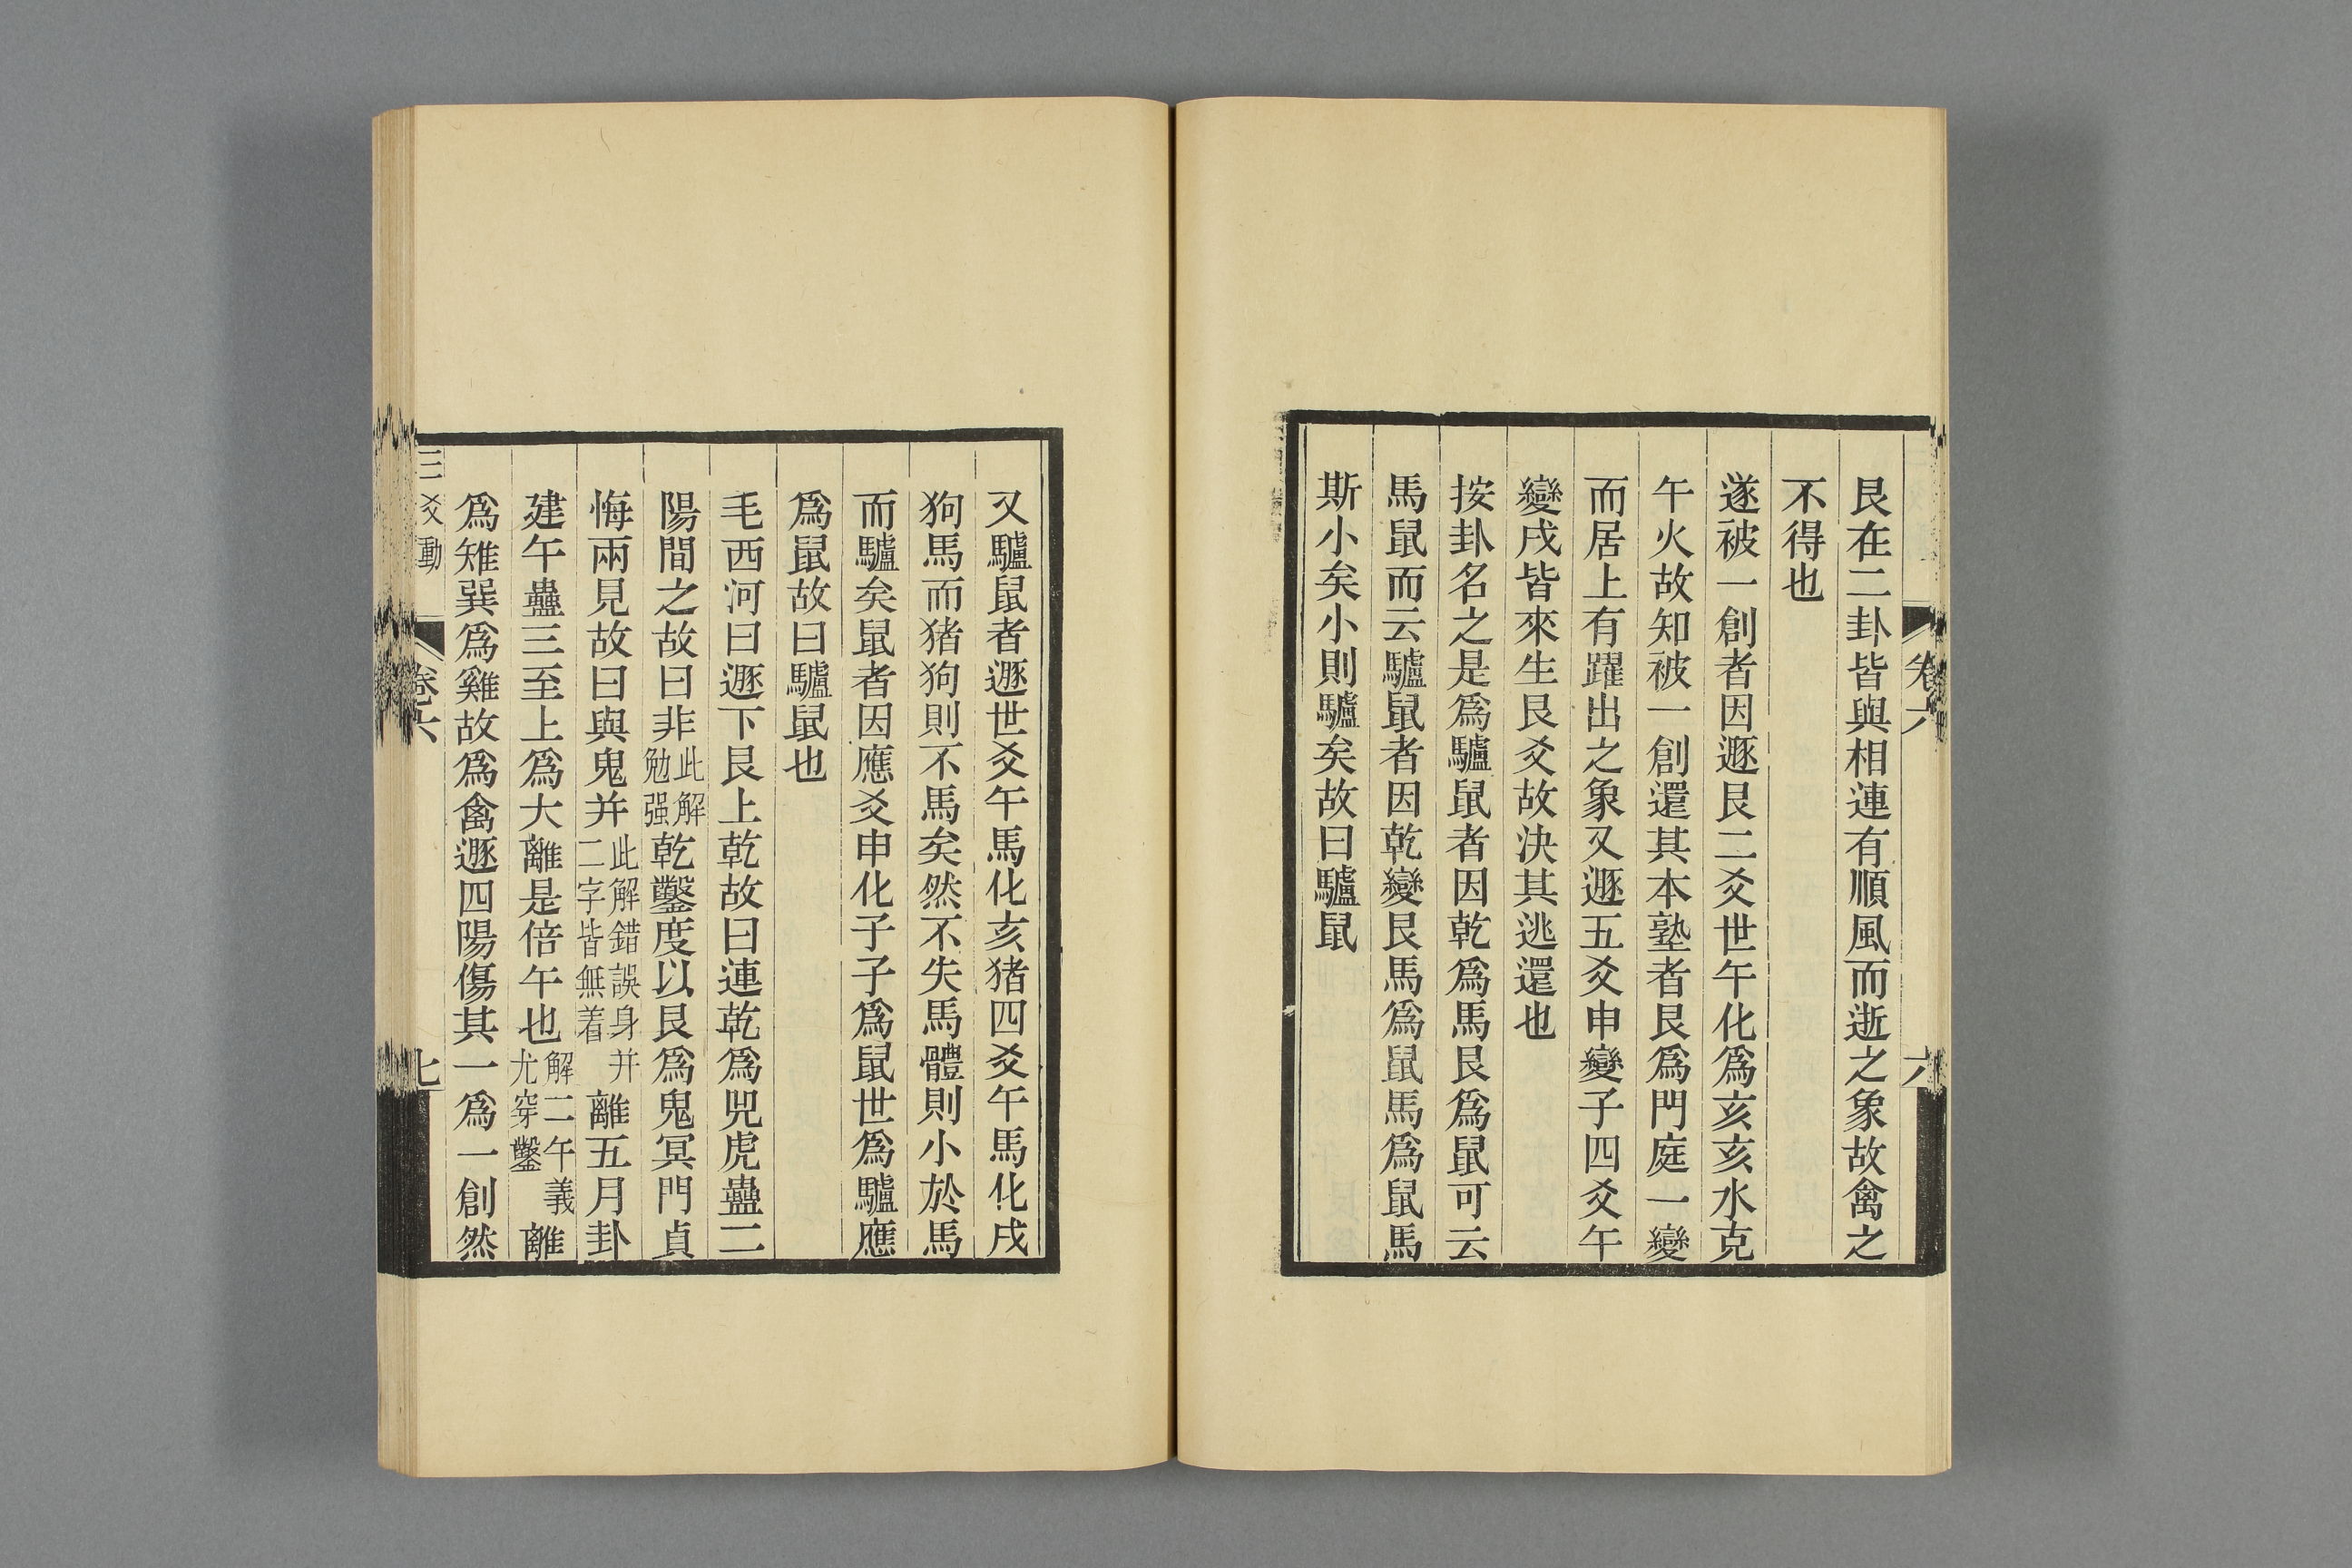 艮在二卦皆與相連有順風而逝之象故禽之
不得也
遂被一創者因遯艮二爻世午化爲亥亥水克
午火故知被一創還其本墊者艮爲門庭一變
而居上有躍出之象又遯五爻申變子四爻午
變戌皆來生艮爻故決其逃還也
按卦名之是爲驢鼠者因乾爲馬艮爲鼠可云
馬鼠而云驢鼠者因乾變艮馬爲鼠馬爲鼠馬
斯小矣小則驢矣故曰驢鼠
卷六
六
又驢鼠者遯世爻午馬化亥猪四爻午馬化戌
狗馬而猪狗則不馬矣然不失馬體則小於馬
而驢矣鼠者因應爻申化子子爲鼠世爲驢應
爲鼠故曰驢鼠也
毛西河曰遯下艮上乾故曰連乾爲兕虎蠱二
陽間之故曰非此解勉强乾鑿度以艮爲鬼冥門貞
悔兩見故曰與鬼并此解錯誤身并二字皆無着離五月卦
建午蠱三至上爲大離是倍午也解二午義尤穿鑿離
爲雉巽爲雞故爲禽遯四陽傷其一爲一創然
三爻動
卷六
七